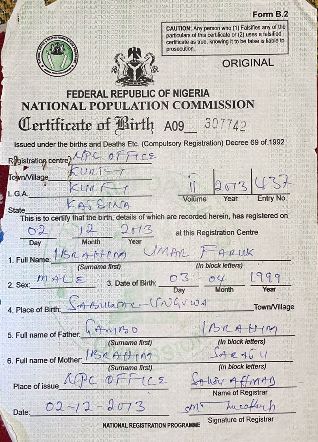 Form B.2
CAUTION: Any person who (1) Falsifies any of the
particulars of this certificate or (2) uses a falsified
certificate as true, knowing it to be false is liable to
prosecution.
ORIGINAL
FEDERAL REPUBLIC OF NIGERIA
NATIONAL POPULATION COMMISSION
Certificate of Birth A09 307742
Issued under the births and Deaths Etc. (Compulsory Registration) Decree 69 of 1992
Registration centre NPC OFFICE
Town/Village KURFI
L.G.A. KURFI ii 2013 437
Volume Year Entry No.
State KATSINA
This is to certify that the birth, details of which are recorded herein, has been registered on
02 12 2013 at this Registration Centre
Day Month Year
1. Full Name: IBRAHIM UMAR FARUK
(Surname first) (In block letters)
2. Sex: MALE 3. Date of Birth: 03 04 1999
Day Month Year
4. Place of Birth: UNGUWA Town/Village
5. Full name of Father: GAMBO IBRAHIM
(Surname first) (In block letters)
6. Full name of Mother: IBRAHIM
(Surname first) (In block letters)
Place of issue NPC OFFICE
Name of Registrar
Date: 02-12-2013
Signature of Registrar
NATIONAL REGISTRATION PROGRAMME